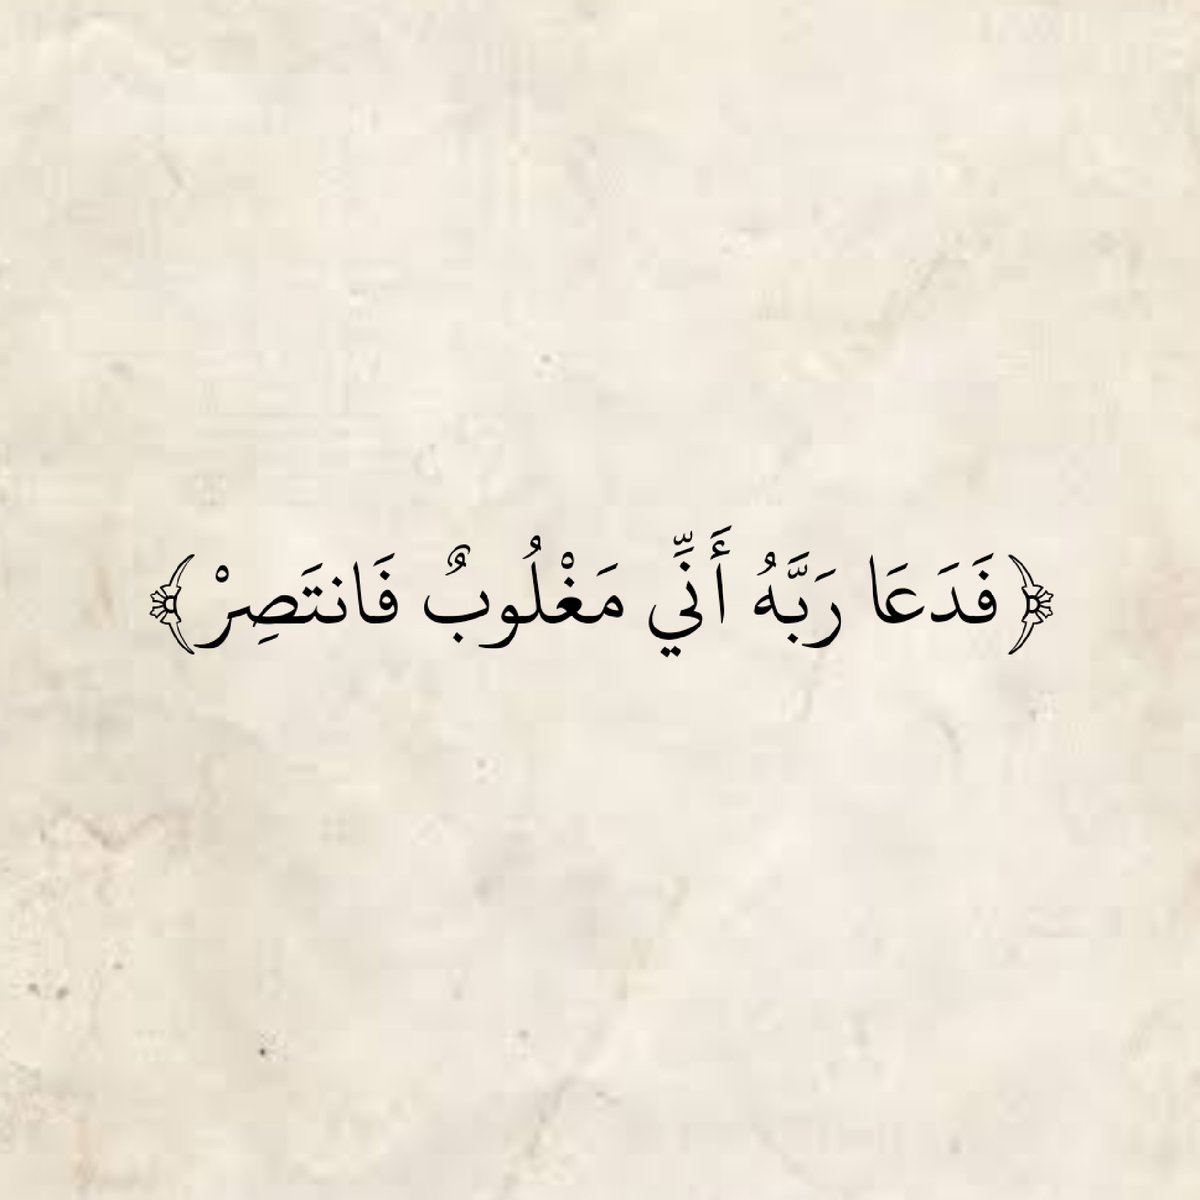 ﴿فَدَعَا رَبَّهُ أَنِّي مَغْلُوبٌ فَانتَصِرْ﴾